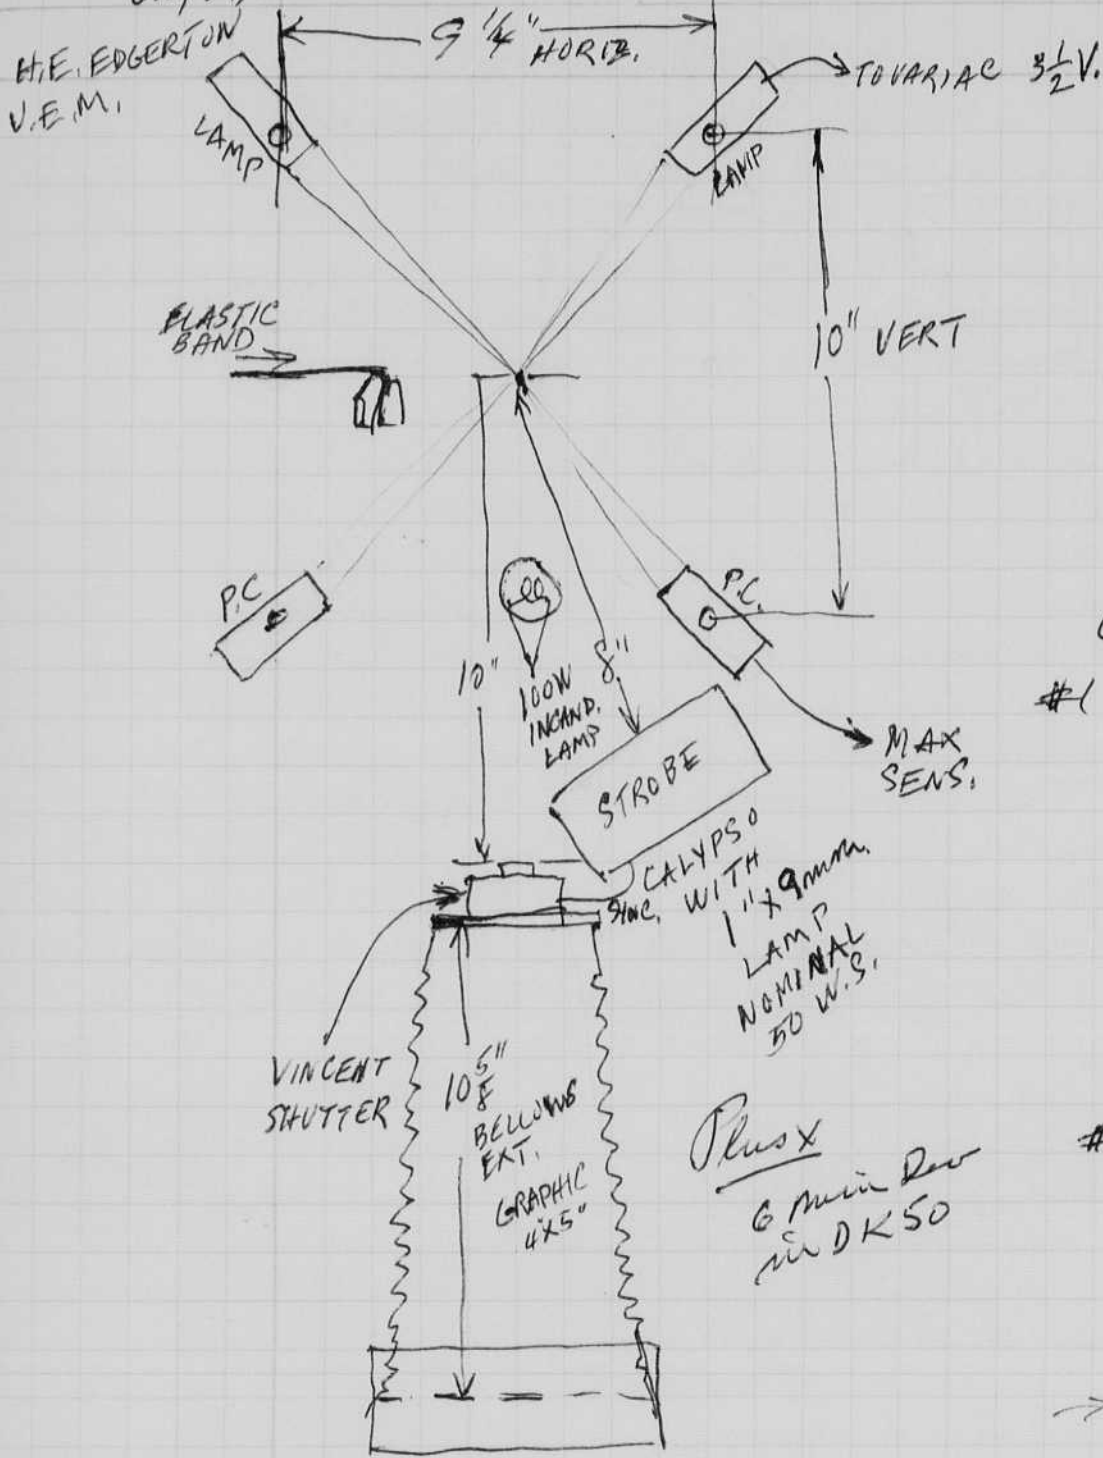 H.E. EDGERTON
V.E.M.
9 1/4" HORIZ.
LAMP
LAMP
TO VARIAC 3 1/2 V.
ELASTIC
BAND
10" VERT
P.C
P.C.
10"
8"
100W
INCAND.
LAMP
STROBE
MAX
SENS.
#1
CALYPSO
WITH
1" x 9mm.
LAMP
NOMINAL
50 W.S.
SYNC.
VINCENT
SHUTTER
10 5/8"
BELLOWS
EXT.
GRAPHIC
4x5"
Plus x
6 min Dev
in DK50
#